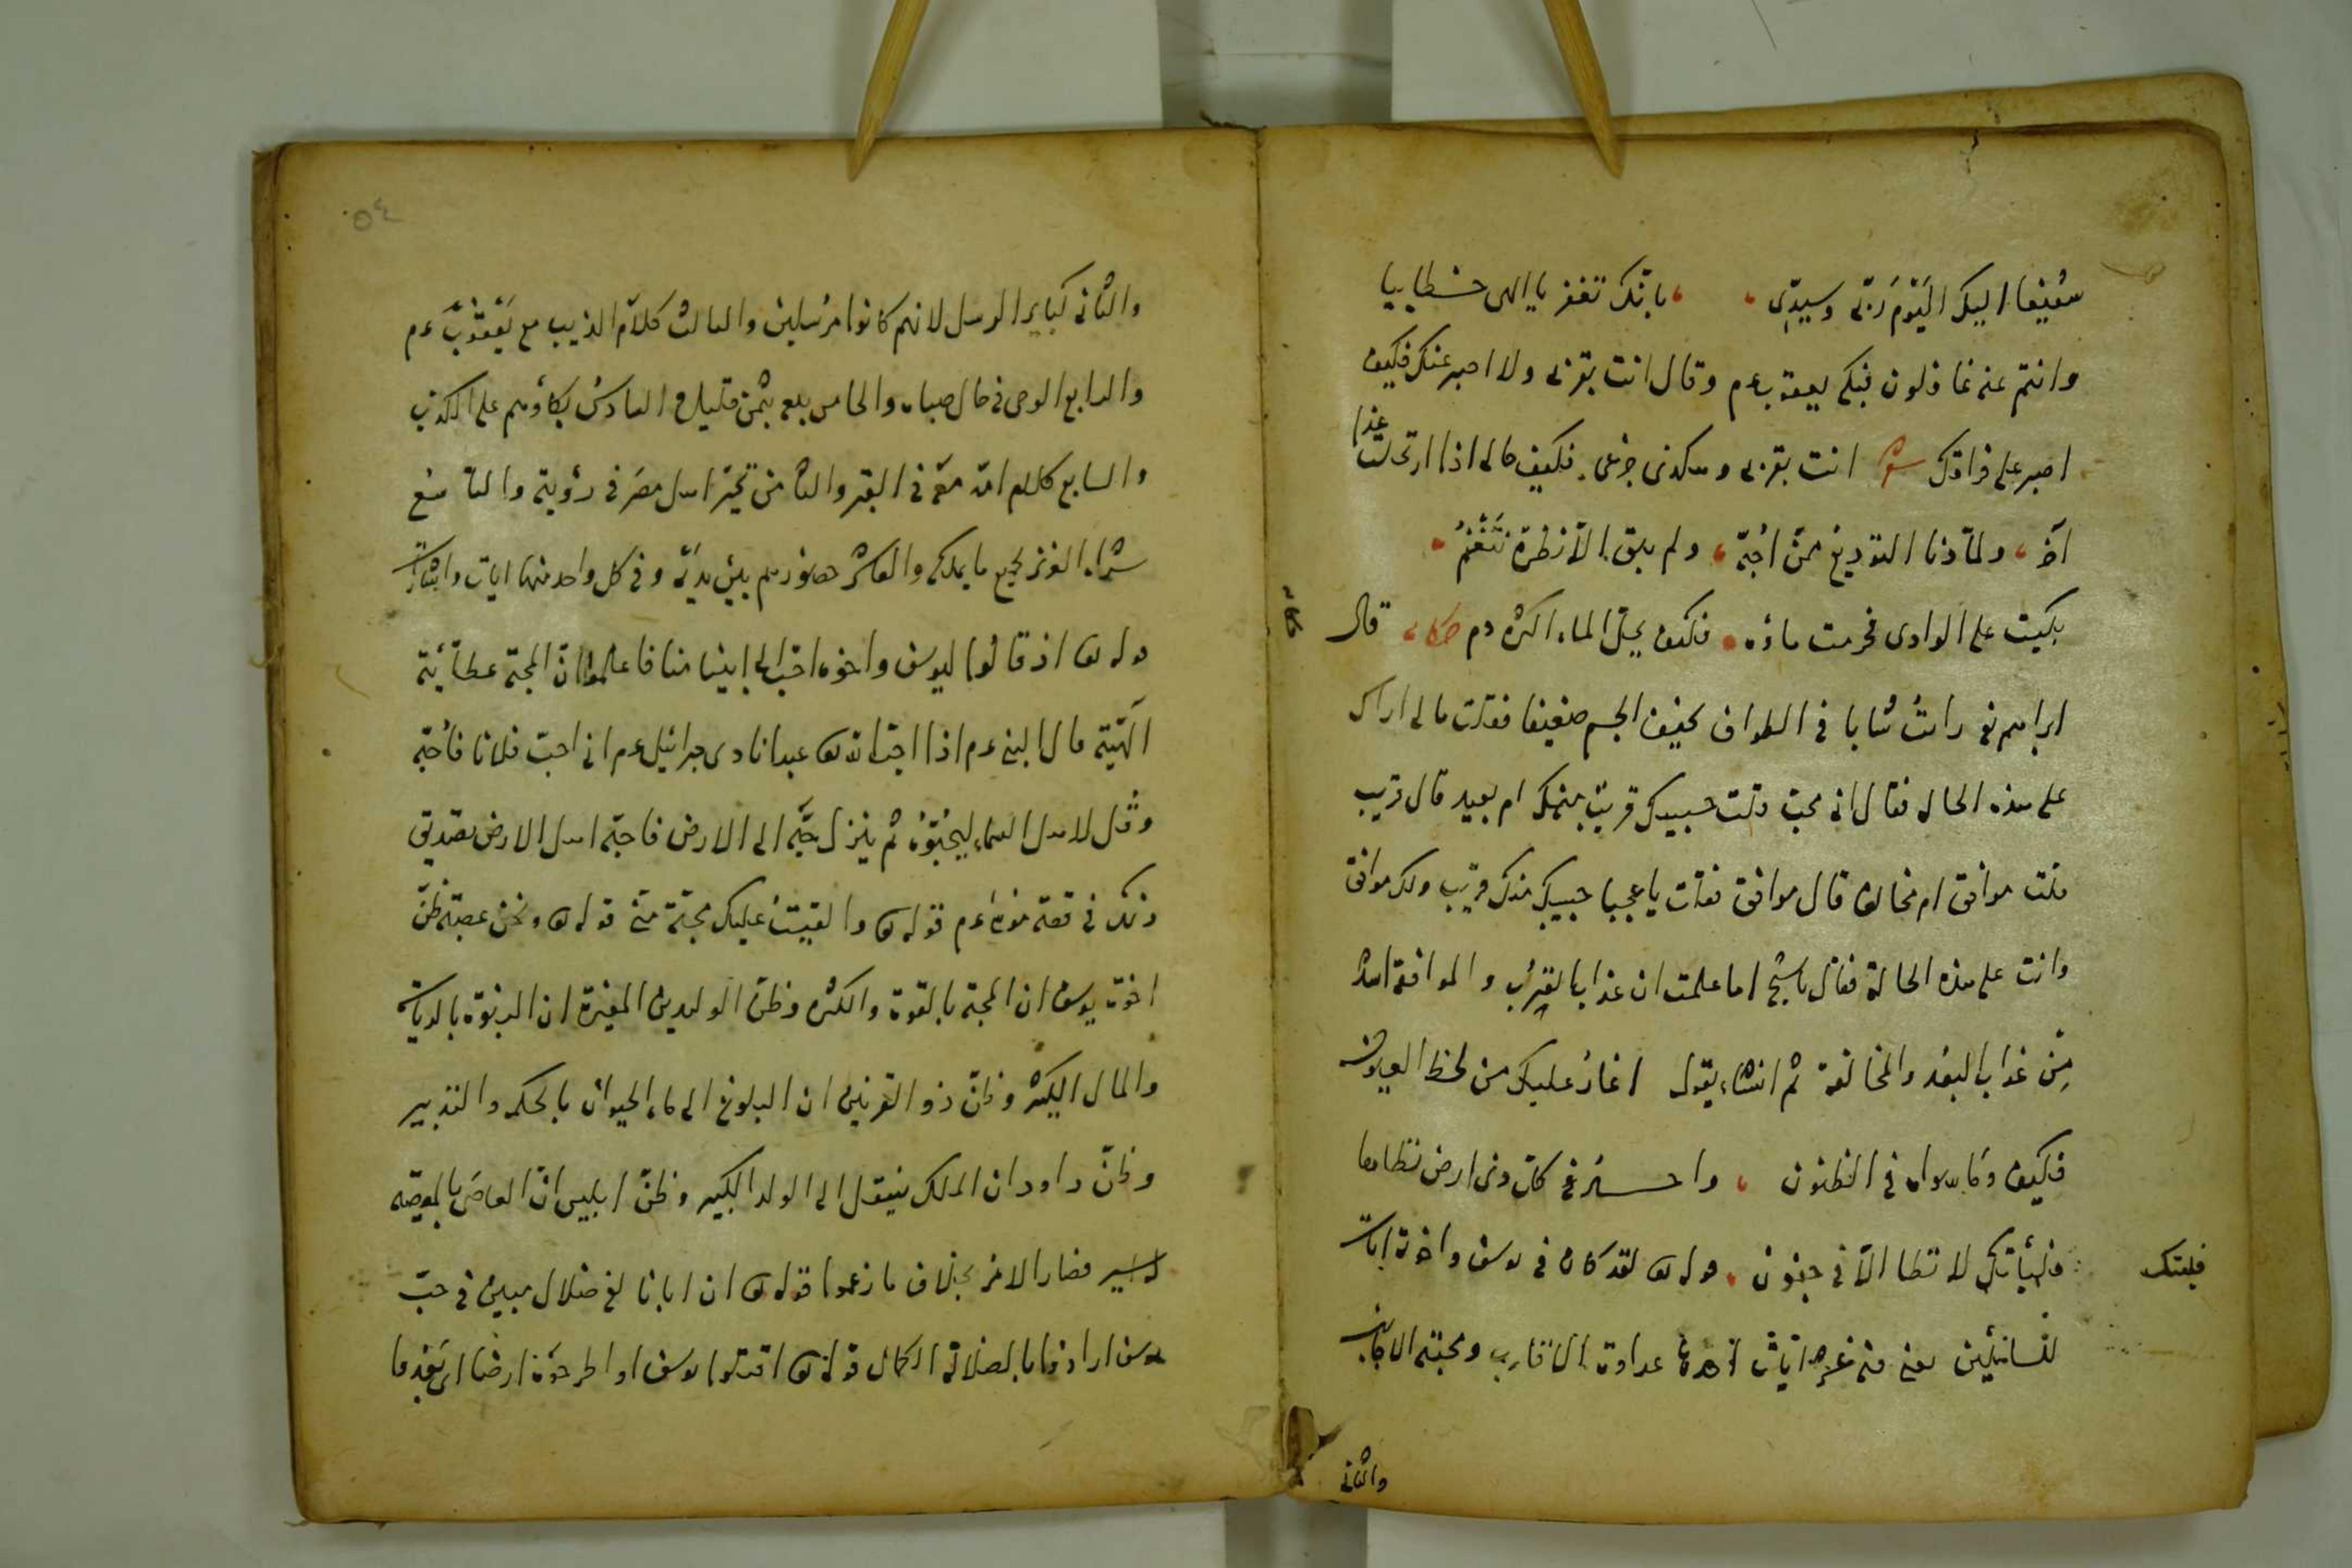 شفيعا اليك اليَوْمَ ربّى وسيدّى ، ، بانّك تغفر يا الهى خطاييا
وانتم عنه غافلون فبكى يعقوب عم وقال انت بقربى ولا اصبر عنك فكيف
اصبر على فراقك شعر انت بقربى وهكذى جزعى فكيف حالى اذا ارتحلت غدا
آخر ، ولمّا دنا التوديع ممّن اُحبّه ، ولم يبق الاّ نظرة تتغنّم ،
بكيت على الوادى فحرمت ماؤه ، فكيف يحل الماء اكثره دم حكاية قال
ابراهيم رايتُ شابا فى الطواف نحيف الجسم ضعيفا فقلت مالى اراك
على هذه الحاله فقال انى محبّ قلت حبيبك قريب منك ام بعيد قال قريب
قلت موافق ام مخالف قال موافق فقلت يا عجبا حبيبك منك قريب ولك موافق
وانت على هذه الحالة فقال يا شيخ اما علمت ان عذاب القرب والموافقة اشد
مِن عذاب البعد والمخالفة ثم انشاء يقول اغار عليك من لحظ العيون
فكيف وما سواه فى الظنون ، وا كان ونى ارض تطاها
فليتك لا تطا الاّ فى جفون ، قوله تعه لقد كان فى يوسف واخوته ايات
فليتك
للسائلين يعنى فيه عشر ايات احدها عداوة الاقارب ومحبته الاجانب
والثانى
٥٤
والثانى كباير الرسل لانهم كانوا مرسلين والثالث كلام الذيب مع يَعْقوبَ عم
والرابع الوحى فى حال صباه والخامس بيعه بثمن قليل والسادس بكاؤهم على الكذب
والسابع كلام امّه معه فى القبر والثامن تحيّر اهل مصر فى رؤيته والتاسع
شراء العزيز بجميع ما يملكه والعاشر حضورهم بين يديه وفى كل واحد منها ايات واشارات
قوله تعه اذ قالوا ليوسف واخوه احبّ الى ابينا منا فاعلموا انّ المحبّة عطائيّة
الٓهيّة قال النبى عم اذا احبّ الله تعه عبدا نادى جبرائيل عم انى احبّ فلانا فاُحبّه
وقل لاهل السماء ليحبّوه ثم ينزل حبّه الى الارض فاحبّه اهل الارض تصديق
ذلك فى قصة موسى عم قوله تعه والقيت عليك محبّة منّى قوله تعه ونحن عصبة ظنّ
اخوة يوسف ان المحبة بالقوة والكثره وظنّ الوليد بن المغيرة ان النبوّة بالرياسة
والمال الكثير وظنّ ذو القرنين ان البلوغ الى ماء الحيوان بالحكمه والتدبير
وظنّ داود ان الملك ينتقل الى الولد الكبير وظنّ ابليس انّ العاصى بالمعصيّه
فصار الامر بخلاف ما زعموا قوله تعه ان ابانا لفى ضلال مبين فى حبّ
يوسف ارادوا بالضلالة الكمال قوله تعه اقتلوا يوسف او اطرحوه ارضا اى بعيدها